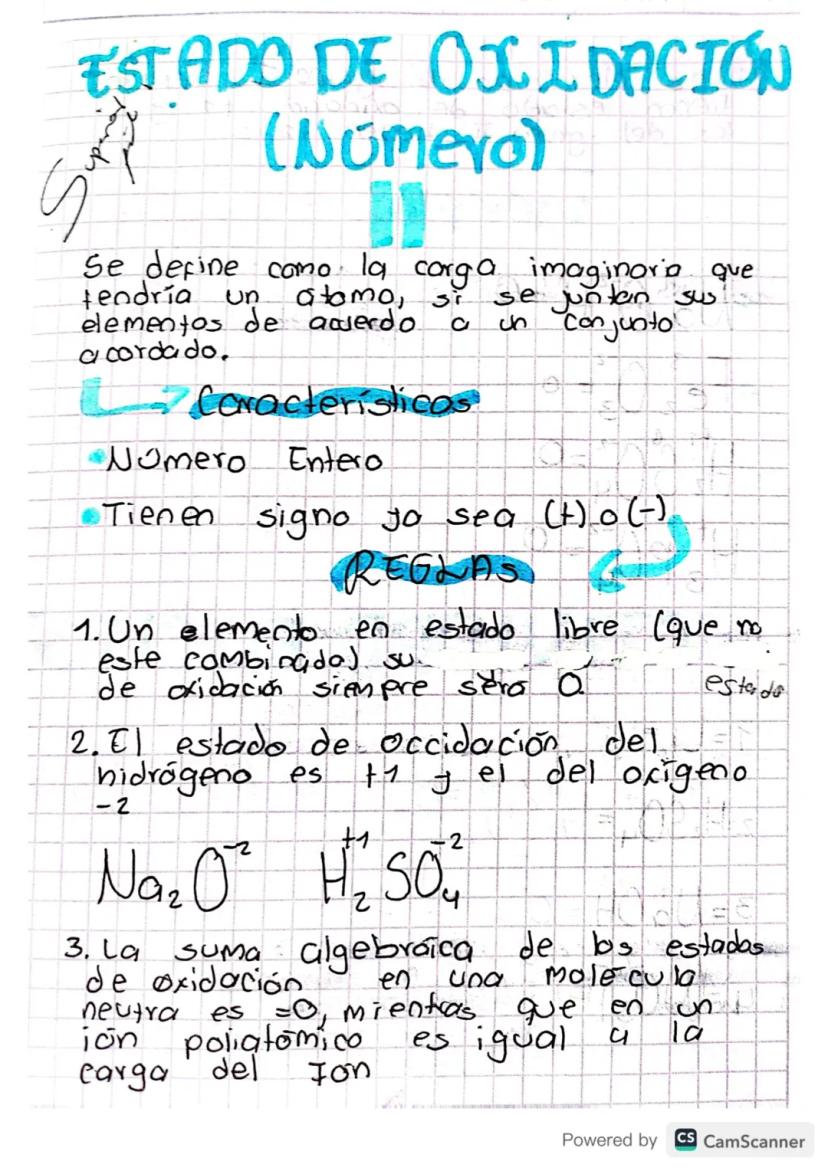 ESTADO DE OXIDACIÓN
(Número)
Se define como la carga imaginaria que
tendría un átomo, si se juntan sus
elementos de acuerdo a un conjunto
acordado.
Características
Número Entero
Tienen signo ya sea (+) o (-)
REGLAS
1. Un elemento en estado libre (que no
este combinado) su
de oxidación siempre será 0
estado
2. El estado de occidación del
hidrógeno es +1 y el del oxígeno
-2
Na₂O⁻² H₂⁺¹SO₄⁻²
3. La suma algebraica de los estados
de oxidación en una molécula
neutra es =0, mientras que en un
ión poliatómico es igual a la
carga del Ion
Powered by CS CamScanner